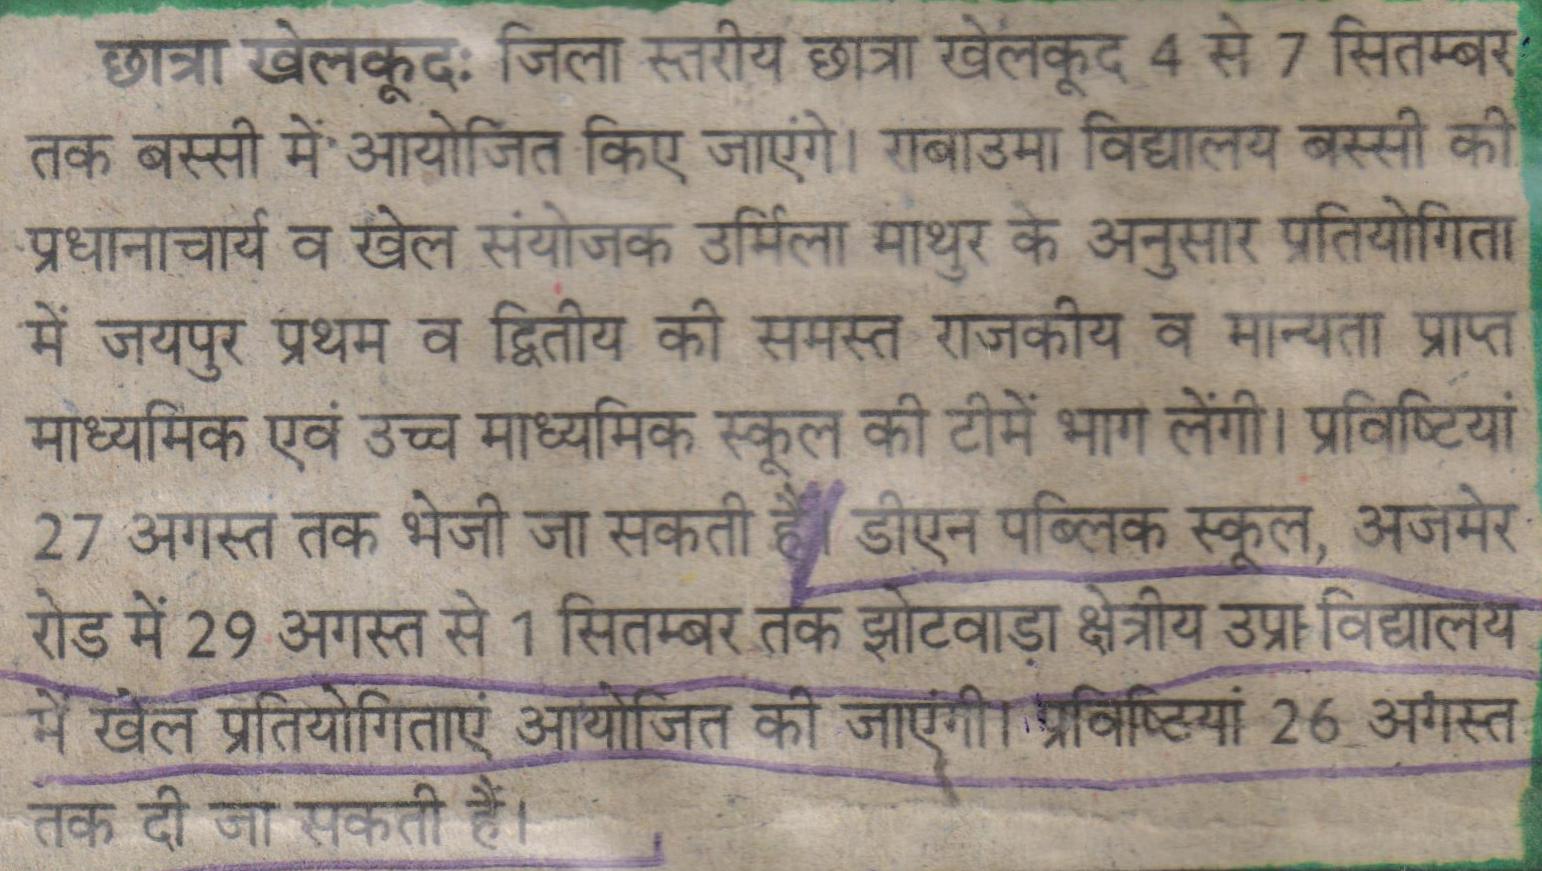 छात्रा खेलकूद: जिला स्तरीय छात्रा खेलकूद 4 से 7 सितम्बर
तक बस्सी में आयोजित किए जाएंगे। राबाउमा विद्यालय बस्सी की
प्रधानाचार्य व खेल संयोजक उर्मिला माथुर के अनुसार प्रतियोगिता
में जयपुर प्रथम व द्वितीय की समस्त राजकीय व मान्यता प्राप्त
माध्यमिक एवं उच्च माध्यमिक स्कूल की टीमें भाग लेंगी। प्रविष्टियां
27 अगस्त तक भेजी जा सकती हैं। डीएन पब्लिक स्कूल, अजमेर
रोड में 29 अगस्त से 1 सितम्बर तक झोटवाड़ा क्षेत्रीय उप्रा विद्यालय
में खेल प्रतियोगिताएं आयोजित की जाएंगी। प्रविष्टियां 26 अगस्त
तक दी जा सकती हैं।